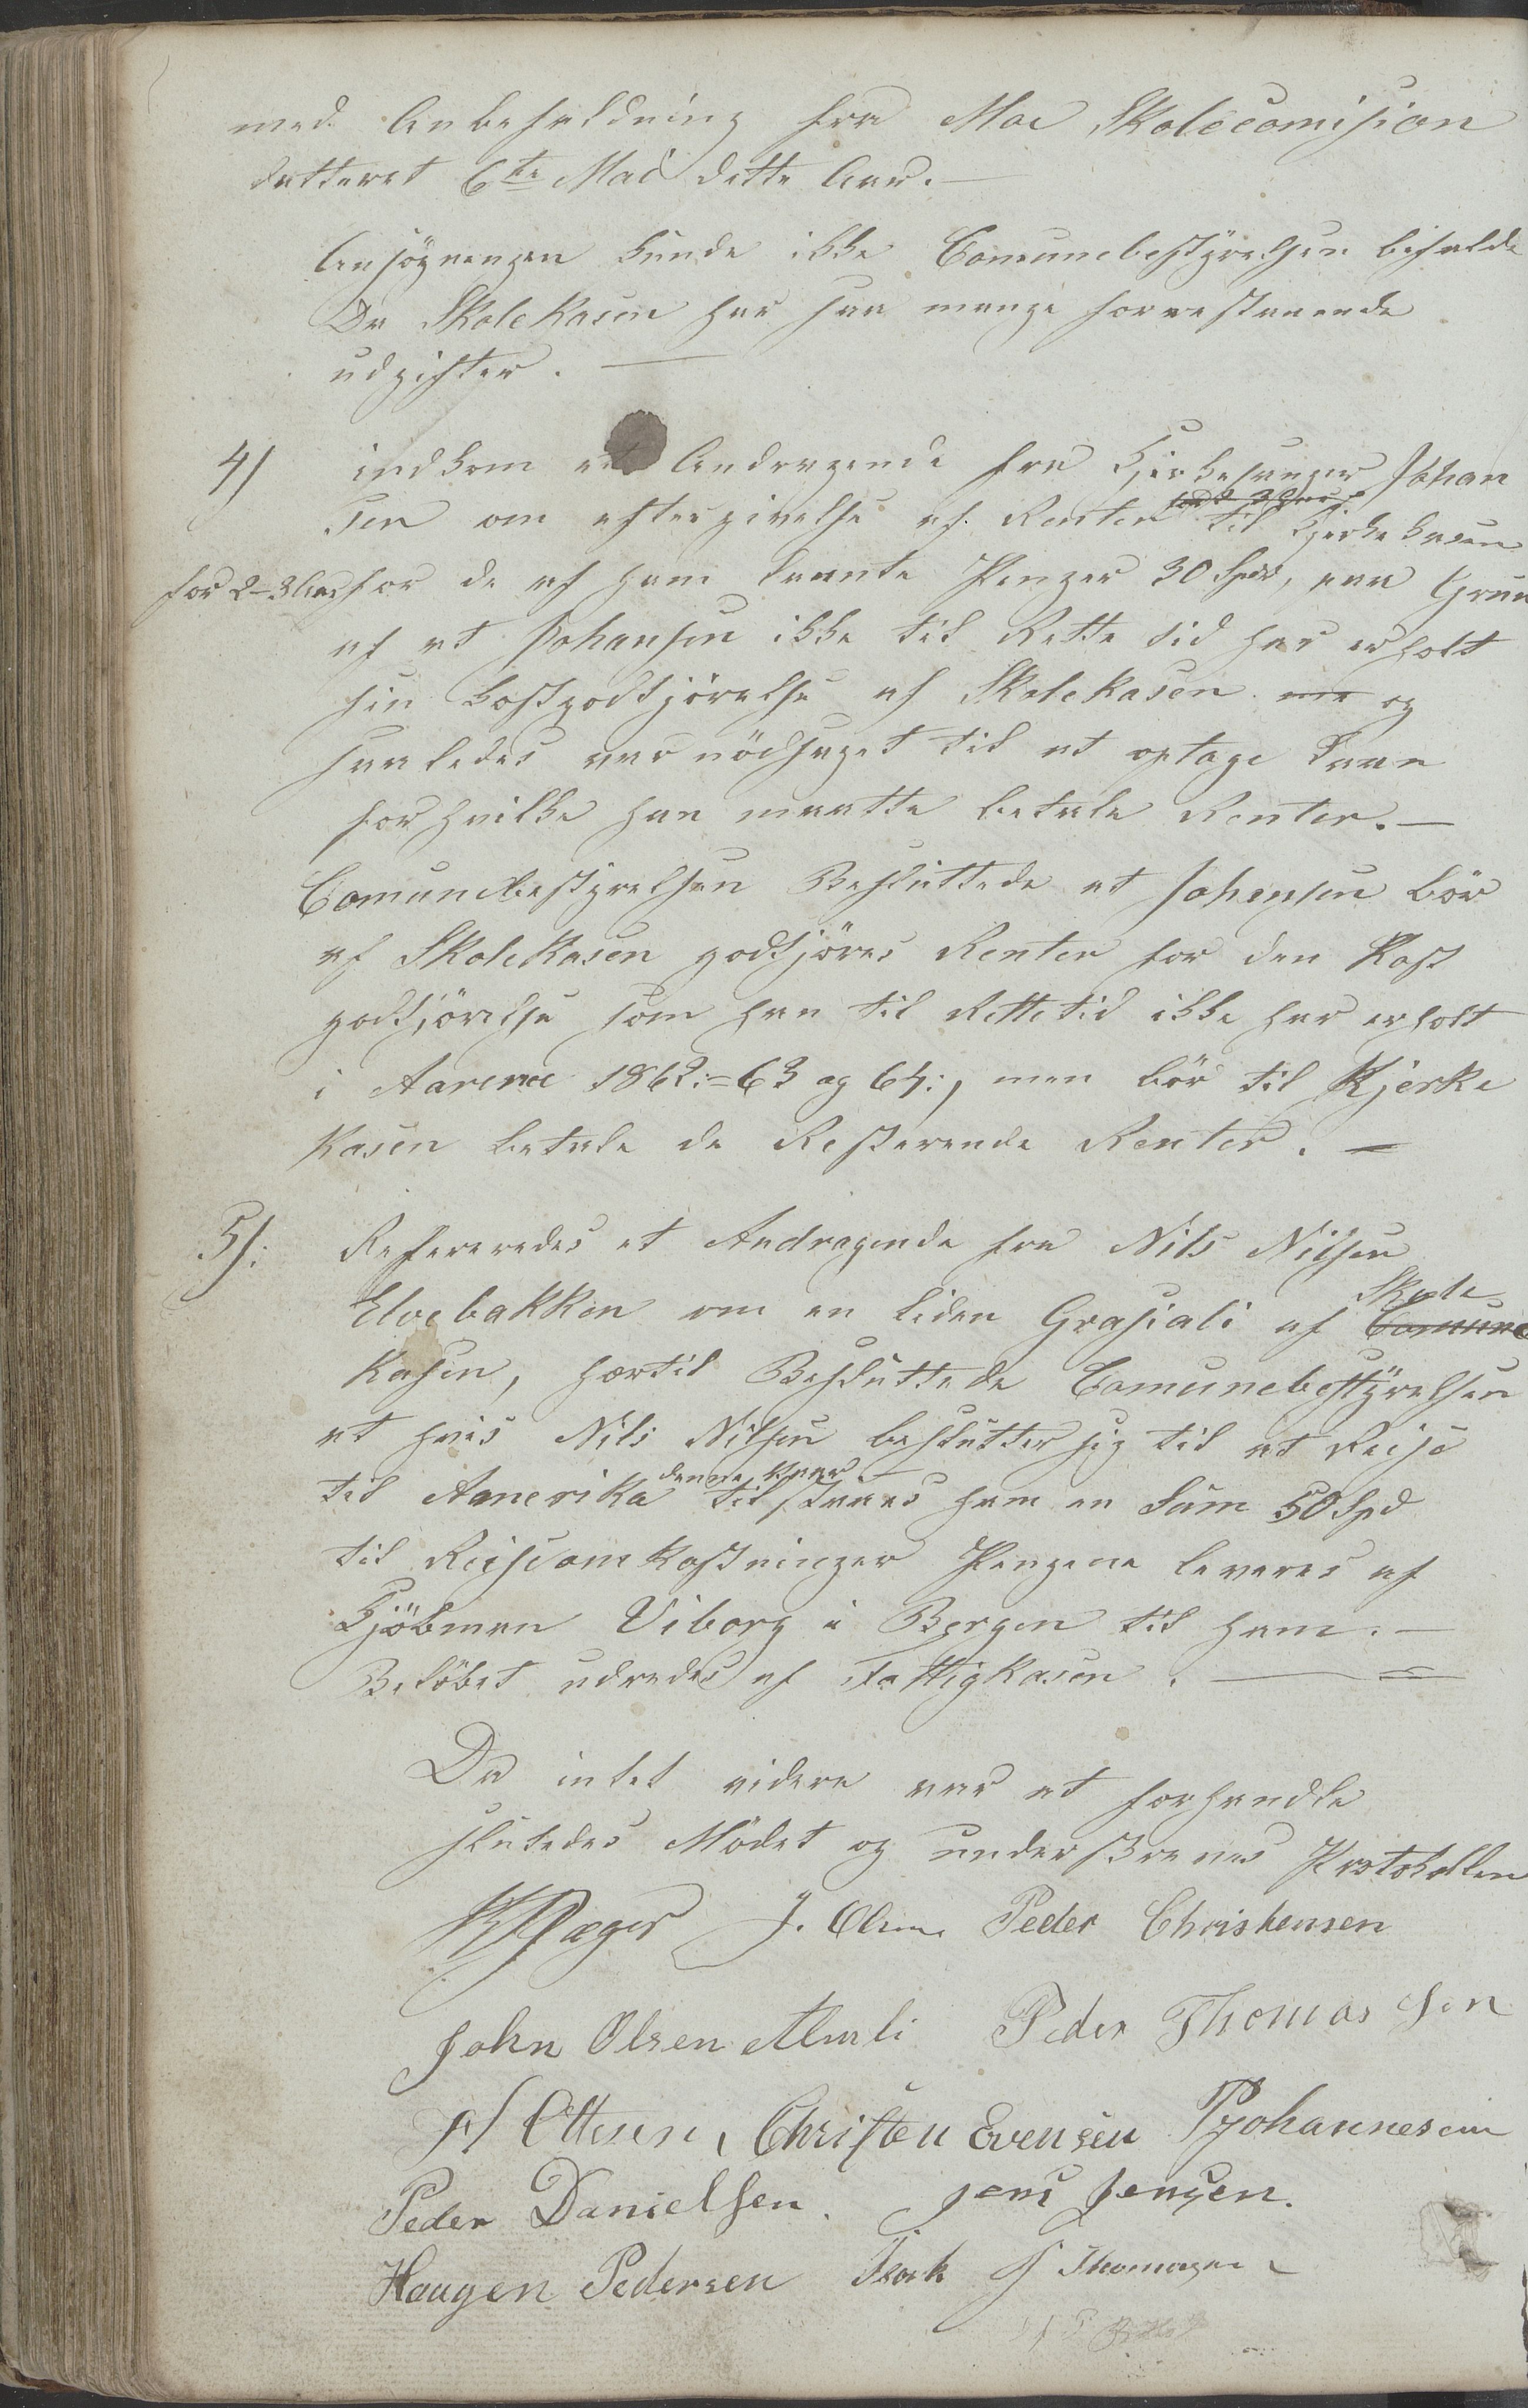 med Anbefaldning fra Moe Skolecomision
datteret 6te Mai dette Aar. —
Ansøgnengen kunde ikke Comunebestyrelsen bifalde
Da Skolekasen har saa mange forrestaaende
udgifter. —
4/ indkom et Andragende fra Kjirkesanger Johan
sen om eftergivelse af Renter for 2-3 Aar til Kjerkekasen
for 2-3 Aar for de af ham laante Penger 30 Spdr, paa Grun
af at Johansen ikke til Rette tid har erholt
sin Kostgodtjørelse af Skolekasen og
saaledes var nødsaget til at optage Laan
for hvilke han maatte betale Renter. —
Comunebestyrelsen Besluttede at Johansen bør
af Skolekasen godtjøres Renter for den Kost
godtjørelse som han til Rettetid ikke har erholt
i Aarene 1862:=63 og 64:, men bør til Kjerke
Kasen betale de Resterende Renter. —
5/: Refereredes et Andragende fra Nils Nilsen
Elvebakken om en liden Grasiali af Comune Skole
Kasen, hærtil Besluttede Comunebestyrelsen
at hvis Nils Nilsen beslutter sig til at Reise
til Amerika denne Vaar tilstaaes ham en Sum 50 Spd
til Reiseomkostninger Pengene leveres af
Kjøbman Viborg i Bergen til ham. —
Beløbet udredes af Fattigkasen. —
Da intet videre var at forhandle
sluttedes Mødet og underskreves Protokollen
J. Olsen Peder Christensen
John Olsen Almli Peder Thomassen
Ottesen, Christen Evensen P Johannesen
Peder Danielsen. Jens Jensen.
Haagen Pedersen Isak J Thomasen